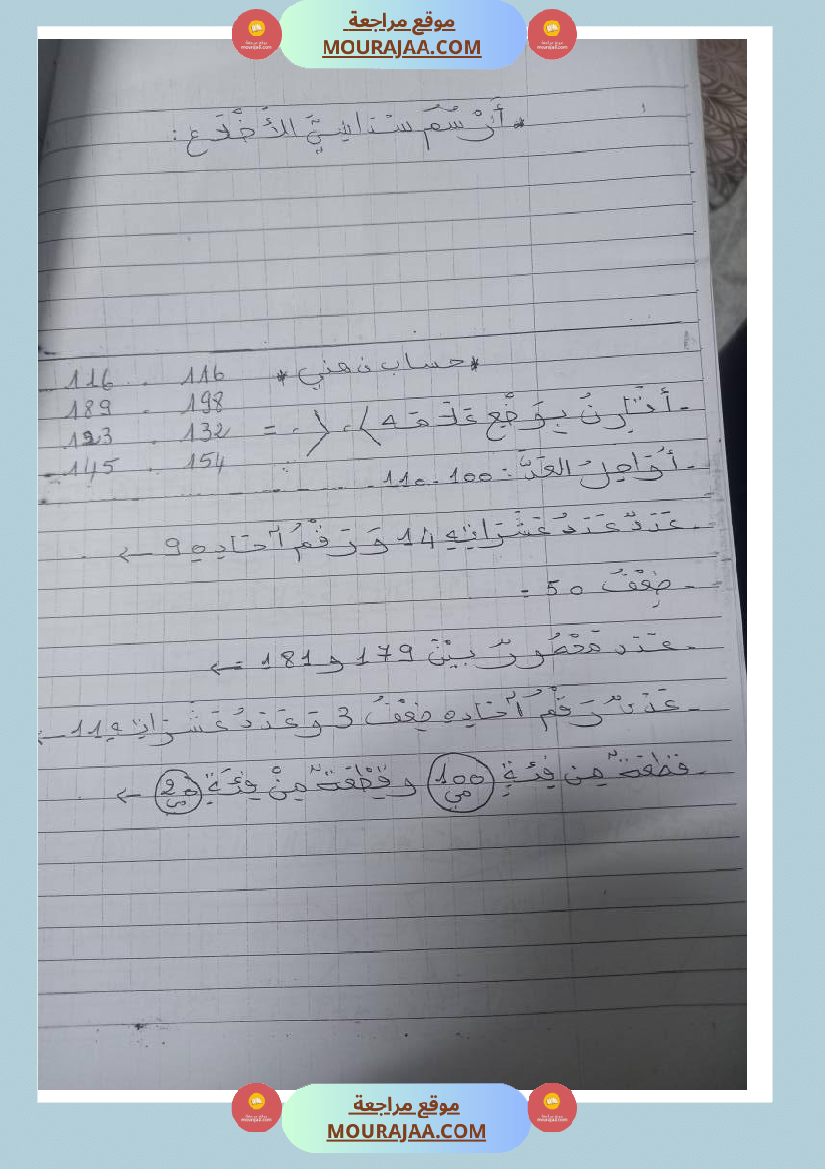 موقع مراجعة
MOURAJAA.COM
* أَرْسُمُ سُدَاسِيَّ الأَضْلَاعِ :
* حساب ذهني *
- أُقَارِنُ بِوَضْعِ عَلَامَة < ، > ، =
116 . 116
189 . 198
123 . 132
145 . 154
- أُوَاصِلُ العَدَّ : 100 - 110
- عَدَدٌ عَدَدُ عَشَرَاتِهِ 14 وَ رَقْمُ آحَادِهِ 9 ←
- ضِعْفُ 50 =
- عدد مَحْصُورٌ بَيْنَ 179 و 181 ←
- عَدَدٌ رَقْمُ آحَادِهِ ضِعْفُ 3 وَ عَدَدُ عَشَرَاتِهِ 11 ←
- قطْعَةٌ مِن فِئَةِ 100 مي و قِطْعَةٌ مِنْ فِئَةِ 20 مي ←
موقع مراجعة
MOURAJAA.COM